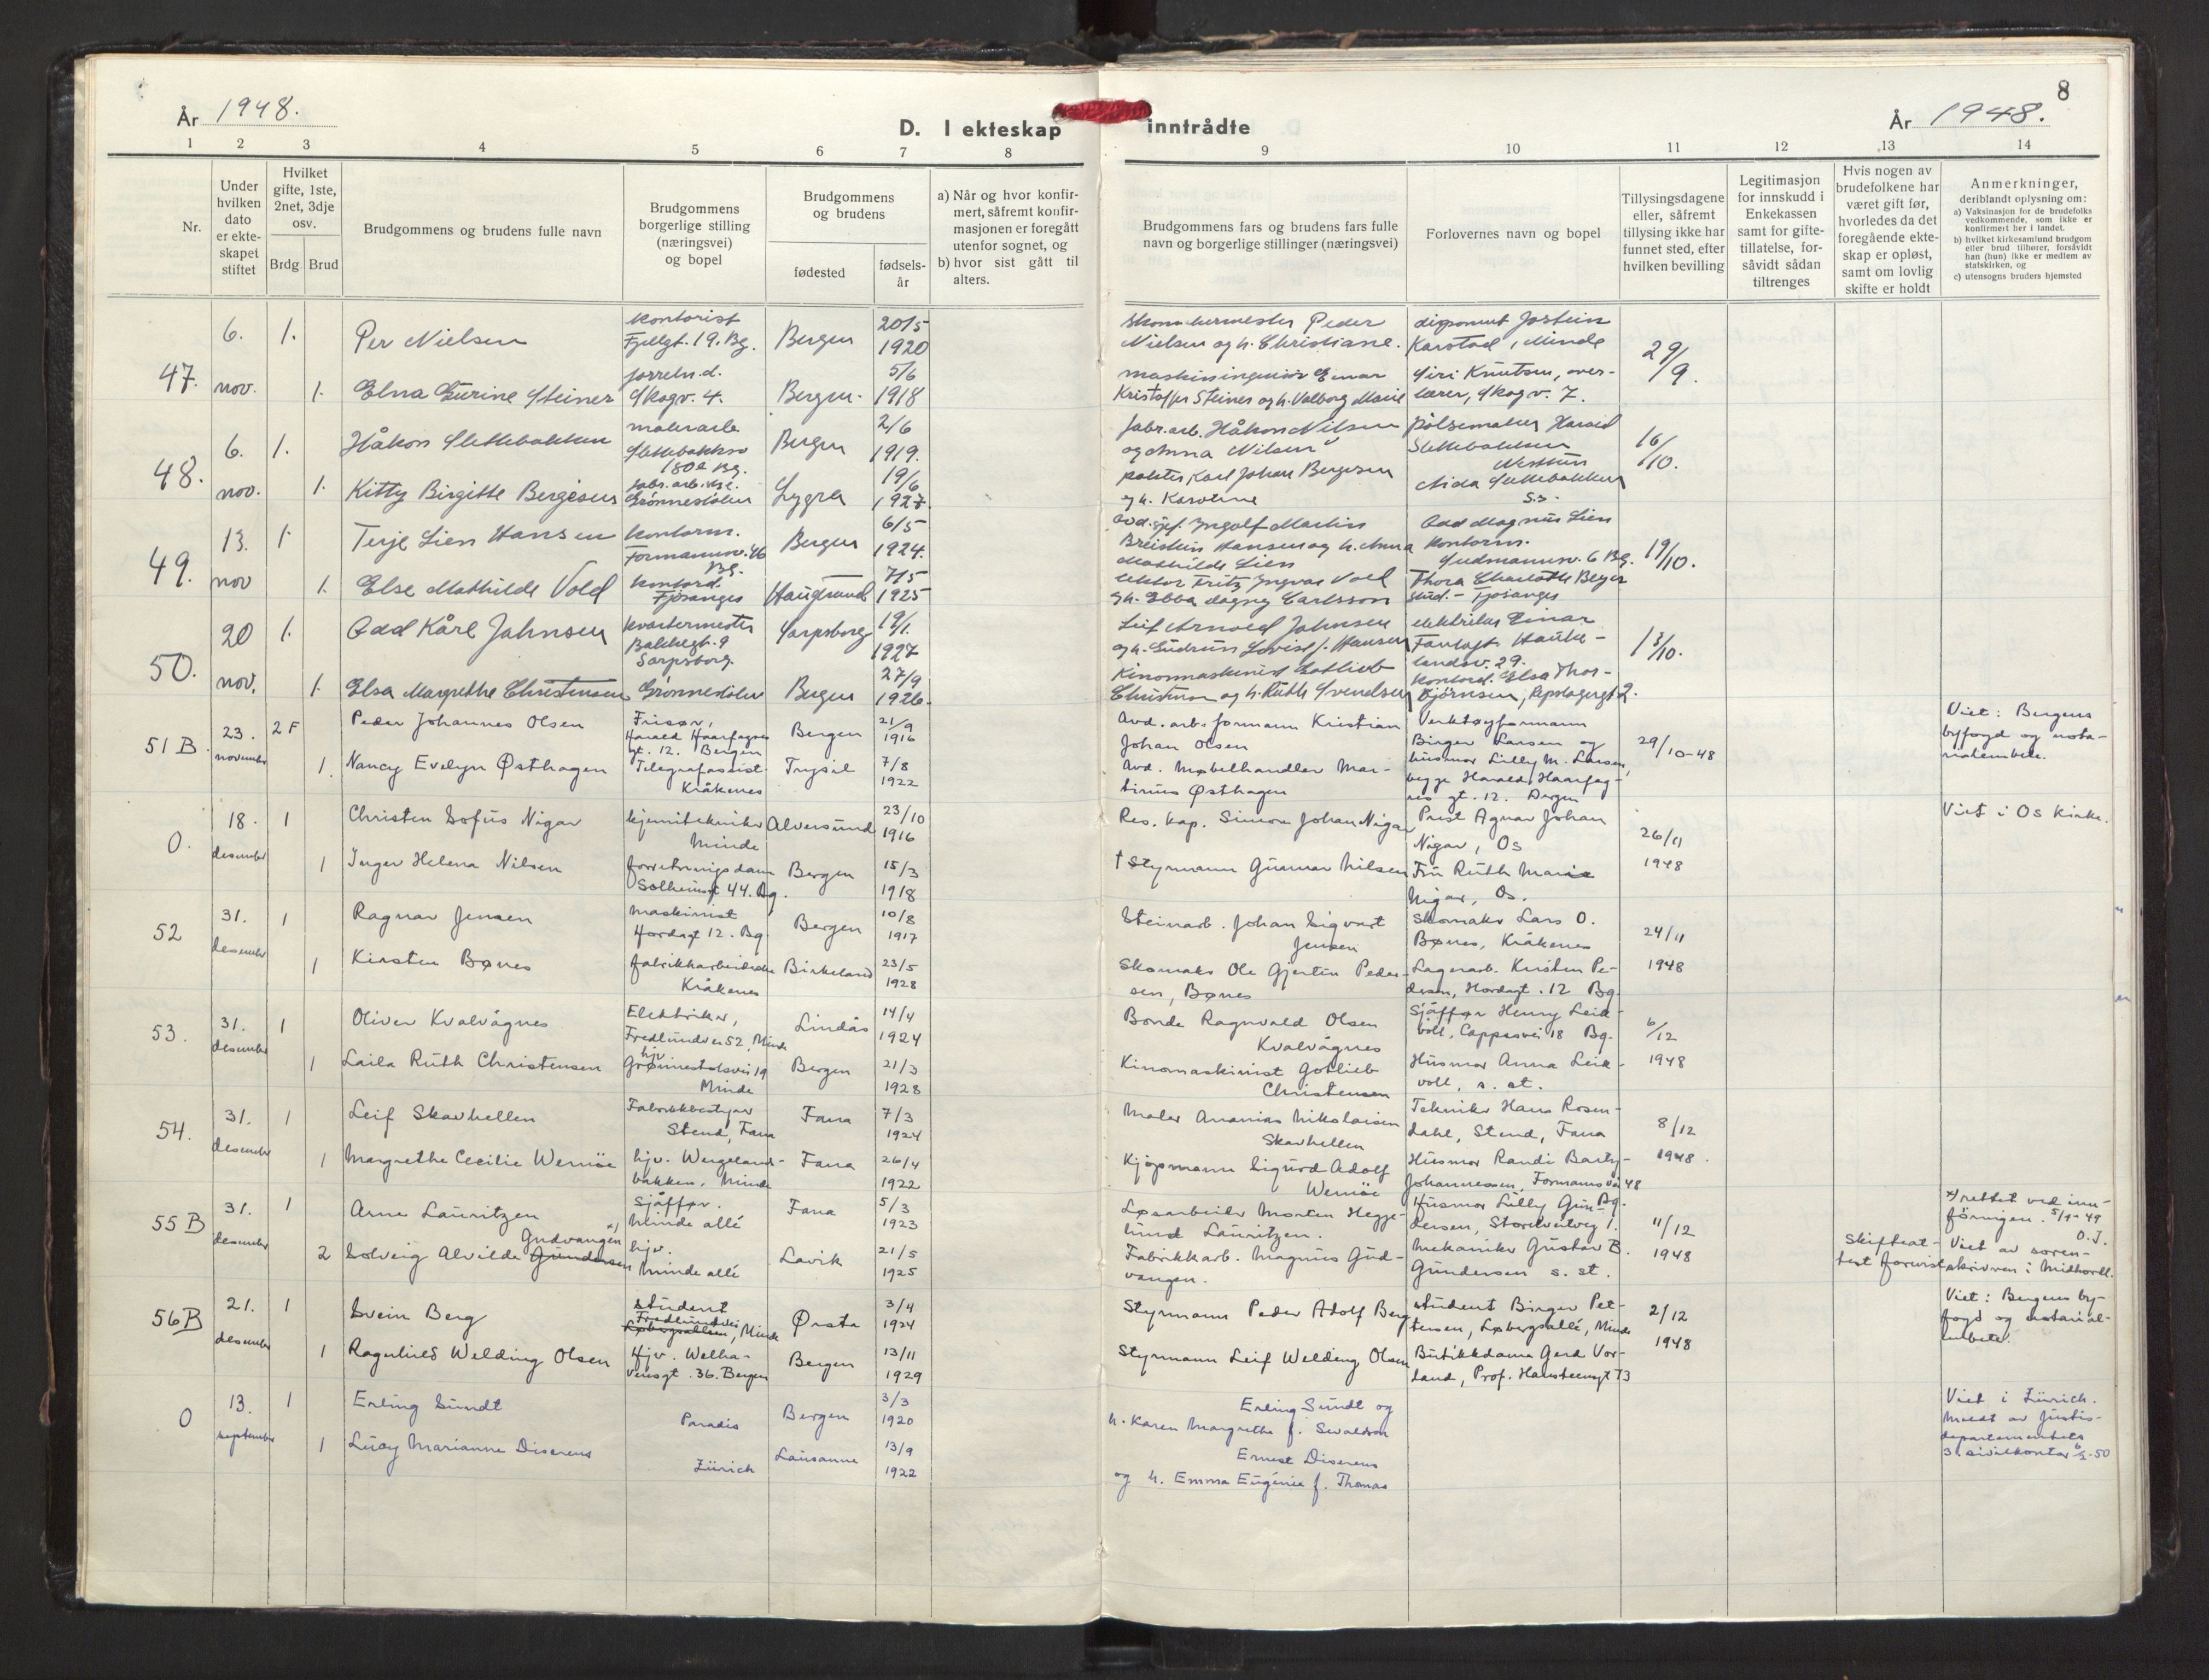 8
År 1948.
D. I ekteskap
inntrådte
År 1948.
1 2 3 4 5 6 7 8
9 10 11 12 13 14
Nr.
Under hvilken dato er ekteskapet stiftet
Hvilket gifte, 1ste, 2net, 3dje osv.
Brdg. Brud
Brudgommens og brudens fulle navn
Brudgommens borgerlige stilling (næringsvei) og bopel
Brudgommens og brudens
fødested
fødsels-
år
a) Når og hvor konfir-
mert, såfremt konfir-
masjonen er foregått
utenfor sognet, og
b) hvor sist gått til
alters.
Brudgommens fars og brudens fars fulle
navn og borgerlige stillinger (næringsvei)
Forlovernes navn og bopel
Tillysingsdagene
eller, såfremt
tillysing ikke har
funnet sted, efter
hvilken bevilling
Legitimasjon
for innskudd i
Enkekassen
samt for gifte-
tillatelse, for-
såvidt sådan
tiltrenges
Hvis nogen av
brudefolkene har
været gift før,
hvorledes da det
foregående ekte-
skap er opløst,
samt om lovlig
skifte er holdt
Anmerkninger,
deriblandt oplysning om:
a) Vaksinasjon for de brudefolks
vedkommende, som ikke er
konfirmert her i landet.
b) hvilket kirkesamfund brudgom
eller brud tilhører, forsåvidt
han (hun) ikke er medlem av
statskirken, og
c) utensogns bruders hjemsted
47.
6. nov.
1.
Per Nielsen
kontorist
Fjellgt. 19. Bg.
Bergen
20/5
1920
Peder
Nielsen og h. Christiane.
disponent Jostein
Karstad, Minde
29/9.
1.
Elna Eurine Steiner
forretn.d.
Skogv. 4.
Bergen.
5/6
1918
maskiningeniør Einar
Kristoffer Steiner og h. Valborg Marie
Siri Knutsen, over-
lærer, Skogv. 7.
48.
6. nov.
1.
Håkon Slettebakken
malerarb.
Slettebakksv
180e Bg.
Bergen
2/6
1919.
fabr.arb. Håkon Nilsen
og Anna Nilsen
pølsemaker Harald
Slettebakken
Nesttun
16/10.
1.
Kitty Birgitte Bergesen
Grønnestølen
Lygra
19/6
1927.
Karl Johan Bergesen
og h. Karoline
Aida Slettebakken
s.s.
49.
13. nov
1.
Terje Lien Hansen
kontorm.
Formannsv. 46
Bg.
Bergen
6/5
1924.
avd.sjef. Ingolf Martin
Breistein Hansen og h. Anna
Mathilde Lien
Odd Magnus Lien
kontorm.
6 Bg.
19/10.
1.
Else Mathilde Vold
kontord.
Fjøsanger
Haugesund
7/5
1925
lektor Fritz Ingvar Vold
og h. Ebba Dagny Carlsson
Thora Charlotte Beyer
stud. - Fjøsanger
50.
20 nov.
1.
Odd Kårl Jahnsen
kvartermester
Bakkegt. 9
Sarpsborg.
Sarpsborg
19/1.
1927
Leif Arnold Jahnsen
og h. Gudrun Lovise f. Hansen
elektriker Einar
Fantoft Hauke-
landsv. 29.
13/10.
1.
Elsa Margrethe Christensen
Grønnestølen
Bergen
27/9
1926.
Kinomaskinist Gotlieb
Christensen og h. Ruth Svendsen
kontord. Elsa Thor-
bjørnsen, Apotagergt 2.
51 B
23. november
2 F
Peder Johannes Olsen
Frisør,
Harald Haarfagres
gt. 12. Bergen
Bergen
21/9
1916
Avd. arb. formann Kristian
Johan Olsen
Verktøyformann
Birger Larsen og
husmor Lilly M. Larsen,
begge Harald Haarfag-
res gt. 12. Bergen
29/10-48
Viet: Bergens
byfogd og nota-
rialembete.
1.
Nancy Evelyn Østhagen
Telegrafassist.
Kråkenes
Trysil
7/8
1922
Avd. Møbelhandler Mar-
tinius Østhagen
0.
18. desember
1
Christen Sofus Nigar
kjemitekniker
Minde
Alversund
23/10
1916
Res. kap. Simon Johan Nigar
Prest Agnar Johan
Nigar, Os
26/11
1948
Viet i Os Kirke.
1
Inger Helena Nilsen
forretningsdame
Solheimsgt 44. Bg.
Bergen
15/3
1918
† Styrmann Gunnar Nilsen
Fru Ruth Marie
Nigar, Os.
52
31. desember
1
Ragnar Jensen
maskinist
Hordagt 12. Bg.
Bergen
10/8
1917
Steinarb. Johan Sigvart
Jensen
Skomaker Lars O.
Bønes, Kråkenes
24/11
1948
1
Kirsten Bønes
fabrikkarbeiderske
Kråkenes
Birkeland
23/5
1928
Skomaker Ole Gjertin Peder-
sen, Bønes
Lagerarb. Kristen Pe-
dersen, Hordagt. 12 Bg.
53.
31. desember
1
Oliver Kvalvågnes
Elektriker,
Fredlundvei 52, Minde
Lindås
14/4
1924
Bonde Ragnvald Olsen
Kvalvågnes
Sjåffør Henry Leik-
voll, Cappesvei 18 Bg.
6/12
1948
1
Laila Ruth Christensen
hjv
Grønnestølsvei 19
Minde
Bergen
21/3
1928
Kinomaskinist Gotlieb
Christensen
Husmor Anna Leik-
voll, s. st.
54.
31. desember
1
Leif Skavhellen
Fabrikkbestyrer
Stend, Fana
Fana
7/3
1924
Maler Ananias Nikolaisen
Skavhellen
Tekniker Hans Rosen-
dahl, Stend, Fana
8/12
1948.
1
Margrethe Cecilie Wernöe
hjv. Wergeland-
bakken, Minde
Fana
26/4
1922
Kjøpmann Sigurd Adolf
Wernöe
Husmor Randi Barby-
Johannessen, Formannsvei 48
Bg.
55 B
31. desember
1
Arne Lauritzen
Sjåffør.
Minde allé
Fana
5/3
1923
Løsarbeider Morten Hegge-
lund Lauritzen.
Husmor Lilly Gun-
dersen, Storetveitveg 1.
11/12
1948
x) rettet ved inn-
føringen. 5/1-49
O.J.
2
Solveig Alvilde Gundersen
Gudvangen x)
hjv.
Minde allé
Lavik
21/5
1925
Fabrikkarb. Magnus Gud-
vangen.
Mekaniker Gustav B.
Gundersen s. st.
Skifteat-
test forevist
Viet av soren-
skriveren i Midhordl.
56 B
21. desember
1
Svein Berg
student
Fredlundvei
Løbergsalleen, Minde
Ørsta
3/4
1924
Styrmann Peder Adolf Berg
student Birger Pet-
tersen, Løbergsallé, Minde
2/12
1948
Viet: Bergens by-
fogd og notarial-
embete.
1
Ragnhild Welding Olsen
Hjv. Welha-
vensgt. 36. Bergen
Bergen
13/11
1929
Styrmann Leif Welding Olsen
Butikkdame Gerd Vor-
land, Prof. Hansteensgt 73
0
13. september
1
Erling Sundt
Paradis
Bergen
3/3
1920
Erling Sundt og
h. Karen Margrethe f. Sevaldson
Viet i Zürich.
Meldt av Justis-
departementets
3. sivilkontor 6/2-50
1
Lucy Marianne Diserens
Zürich
Lausanne
13/9
1922
Ernest Diserens
og h. Emma Eugénie f. Thomas